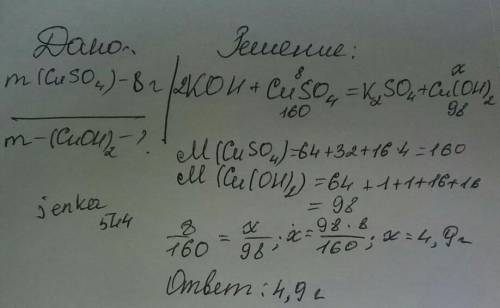 Дано:
m(CuSO₄)-8г
m-(CuOH)₂-?
jenka
5744
Решение:
8 x
2KOH + CuSO₄ = K₂SO₄ + Cu(OH)₂
160 98
M(CuSO₄)=64+32+16·4=160
M(Cu(OH)₂)=64+1+1+16+16
= 98
8/160 = x/98; x = 98·8/160; x = 4,9г
Ответ: 4,9г